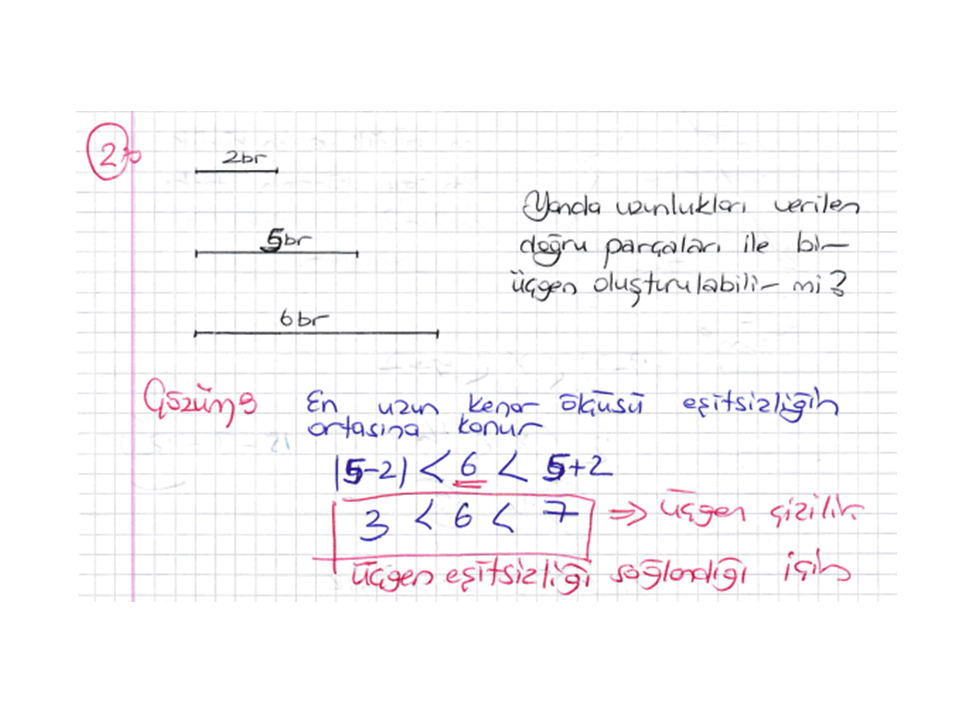 2)
2br
5br
6br
Yanda uzunlukları verilen
doğru parçaları ile bir
üçgen oluşturulabilir mi?
Çözüm:
En uzun kenar ölçüsü eşitsizliğin
ortasına konur
|5-2| < 6 < 5+2
3 < 6 < 7 ⇒ üçgen çizilir.
üçgen eşitsizliği sağlandığı için